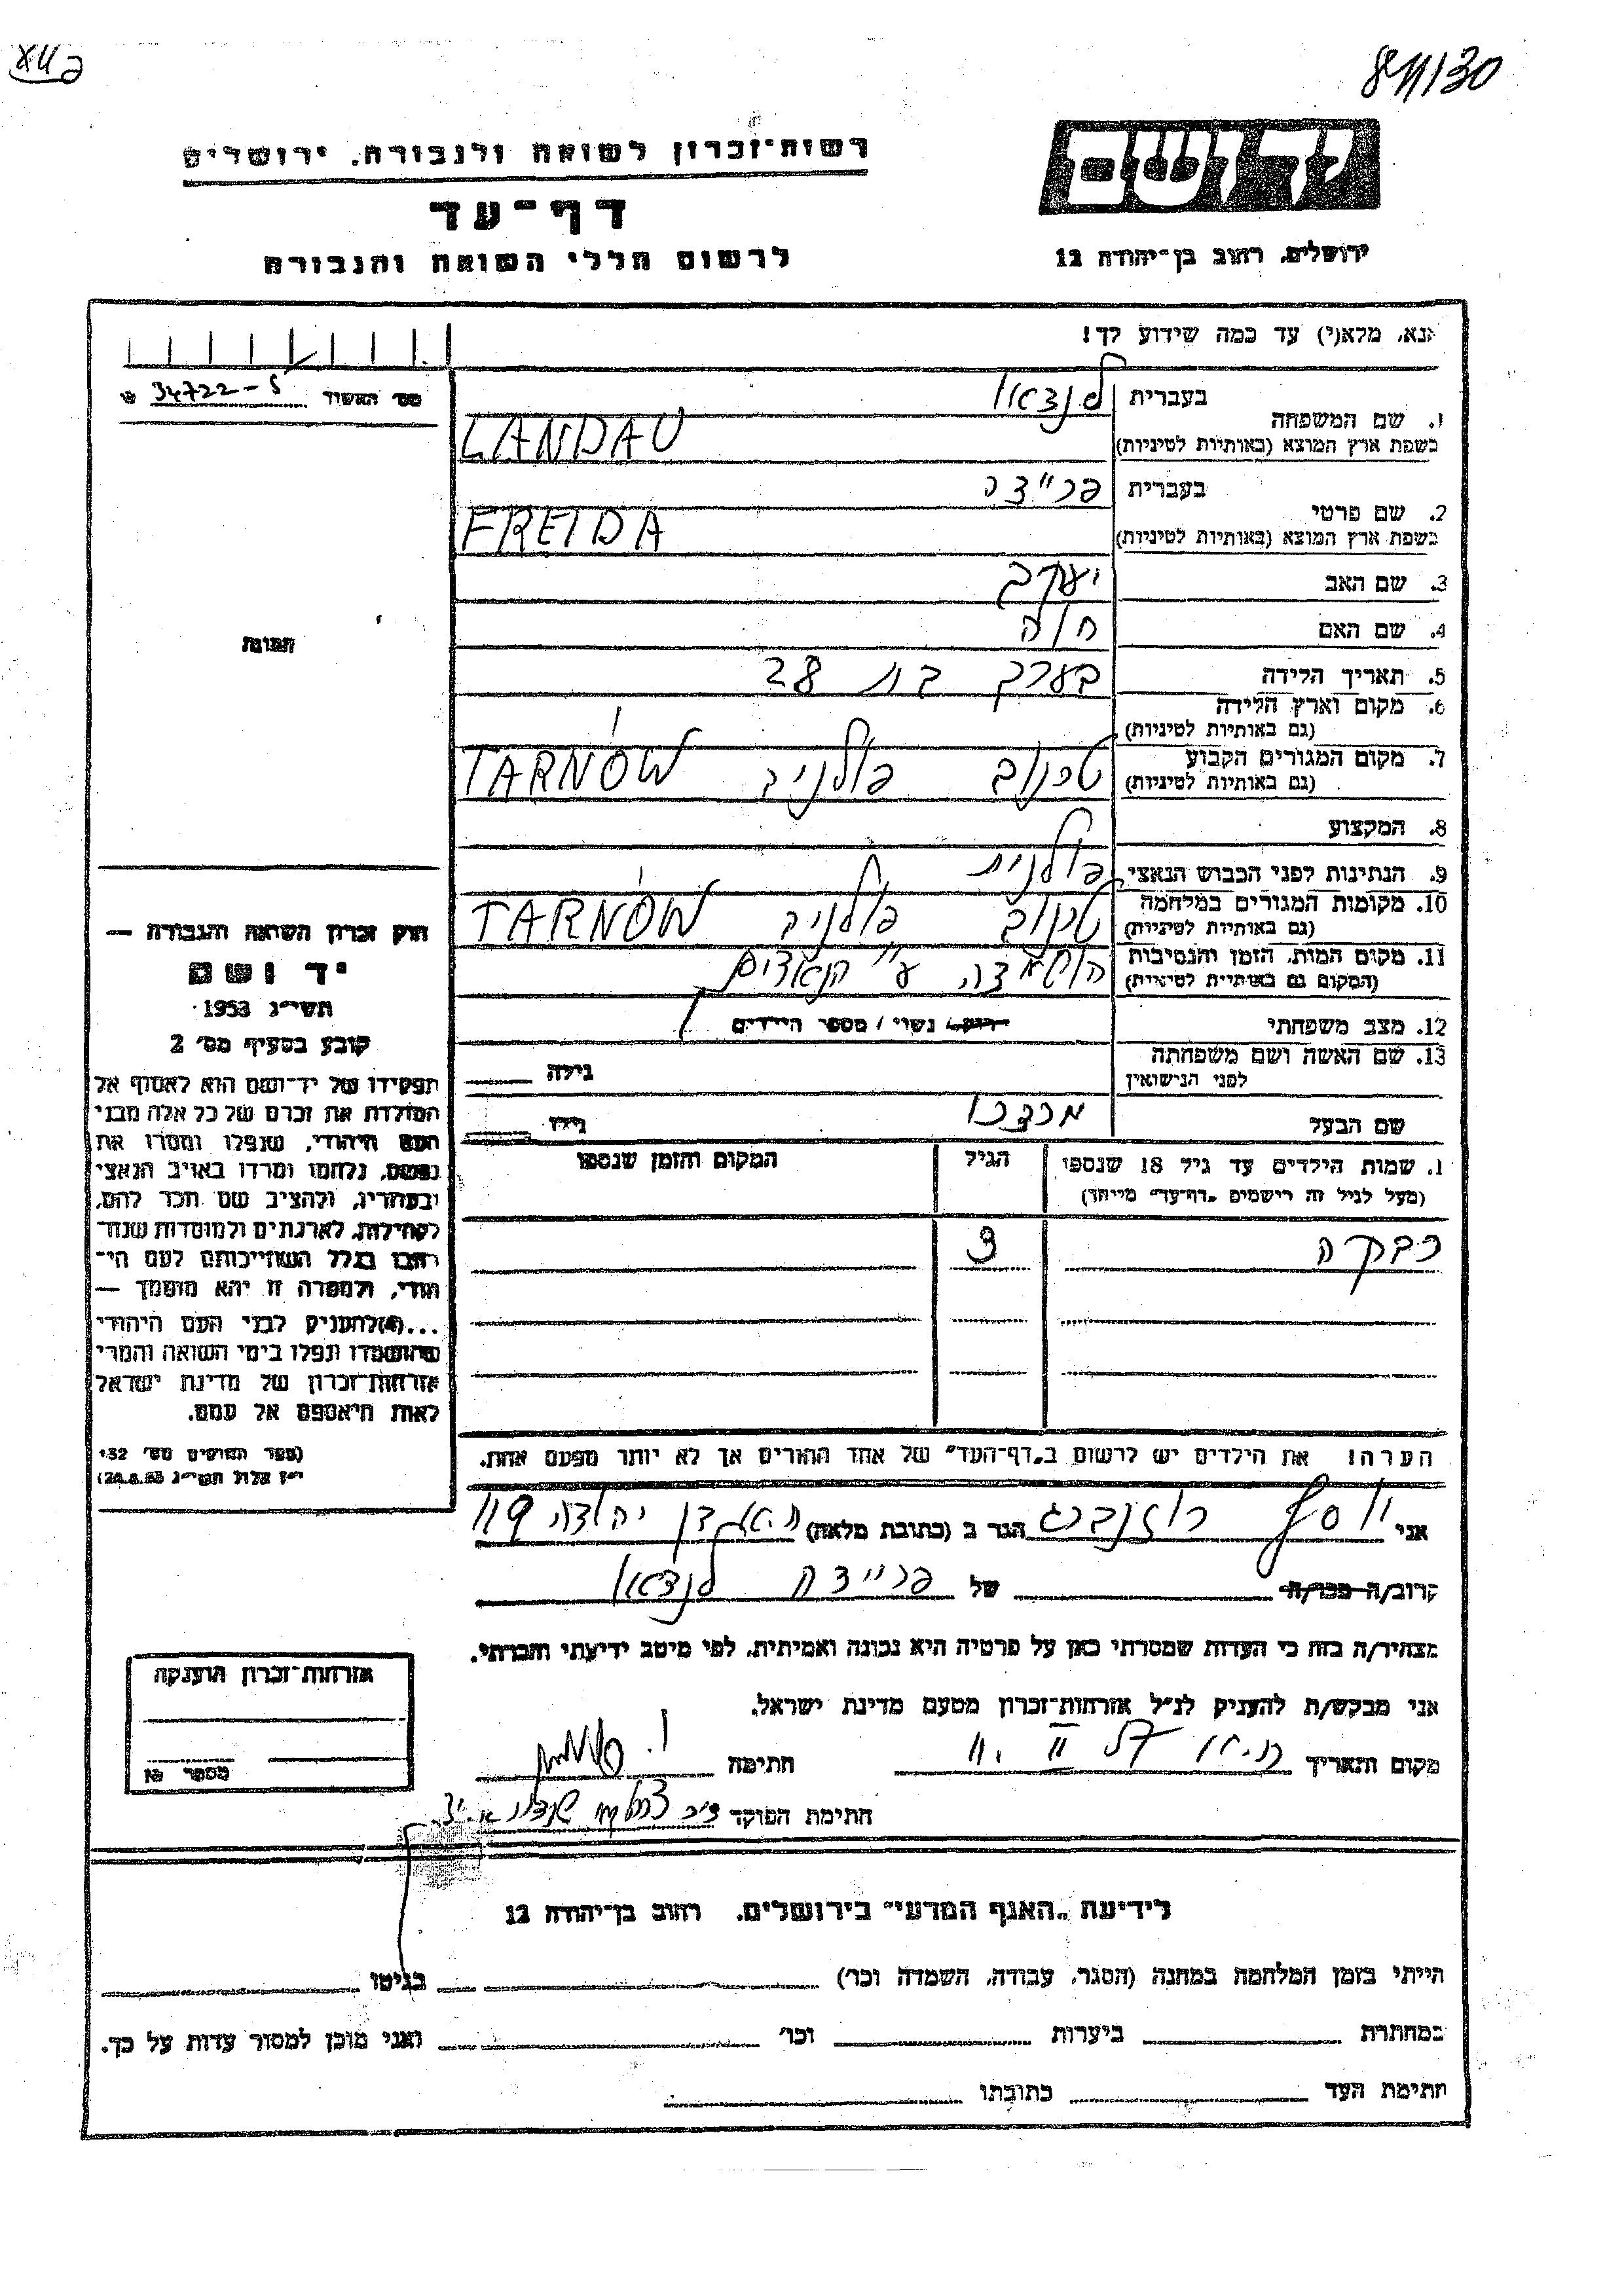 811/30
רשות־זכרון לשואה ולגבורה, ירושלים
דף־עד
לרשום חללי השואה והגבורה
יד ושם
ירושלים, רחוב בן־יהודה 12
אנא, מלא(י) עד כמה שידוע לך!
מס׳ האשור 34722-5
1. שם המשפחה
בעברית לנדאו
בשפת ארץ המוצא (באותיות לטיניות) LANDAU
2. שם פרטי
בעברית פריידה
בשפת ארץ המוצא (באותיות לטיניות) FREIDA
3. שם האב יעקב
4. שם האם חיה
5. תאריך הלידה בערך בת 28
6. מקום וארץ הלידה
(גם באותיות לטיניות)
7. מקום המגורים הקבוע טרנוב פולניה TARNÓW
(גם באותיות לטיניות)
8. המקצוע
9. הנתינות לפני הכבוש הנאצי פולנית
10. מקומות המגורים במלחמה טרנוב פולניה TARNÓW
(גם באותיות לטיניות)
11. מקום המות, הזמן והנסיבות הושמדה ע״י הנאצים
(המקום גם באותיות לטיניות)
12. מצב משפחתי רווק/ נשוי / מספר הילדים 1
13. שם האשה ושם משפחתה גילה
לפני הנישואין
שם הבעל מרדכי גילו
1. שמות הילדים עד גיל 18 שנספו הגיל המקום והזמן שנספו
(מעל לגיל זה רישמים „דף־עד״ מייחד)
רבקה 3
הערה! את הילדים יש לרשום ב„דף־העד״ של אחד ההורים אך לא יותר מפעם אחת.
תמונה
חוק זכרון השואה והגבורה —
יד ושם
תשי״ג 1953
קובע בסעיף מס׳ 2
תפקידו של יד־ושם הוא לאסוף אל
המולדת את זכרם של כל אלה מבני
העם היהודי, שנפלו ומסרו את
נפשם, נלחמו ומרדו באויב הנאצי
ובעוזריו, ולהציב שם וזכר להם,
לקהילות, לארגונים ולמוסדות שנח־
רבו בגלל השתייכותם לעם הי־
הודי, ולמטרה זו יהא מוסמך —
...(4)להעניק לבני העם היהודי
שהושמדו ונפלו בימי השואה והמרי
אזרחות־זכרון של מדינת ישראל
לאות היאספם אל עמם.
(ספר החוקים מס׳ 132
י״ז אלול תשי״ג 28.8.53)
אני יוסף רוזנברג הגר ב (כתובת מלאה) ת״א בן יהודה 119
קרוב/ה מכר/ה של פריידה לנדאו
מצהיר/ה בזה כי העדות שמסרתי כאן על פרטיה היא נכונה ואמיתית, לפי מיטב ידיעתי והכרתי.
אני מבקש/ת להעניק לנ״ל אזרחות־זכרון מטעם מדינת ישראל.
מקום ותאריך חתימה
חתימת הפוקד
אזרחות־זכרון הוענקה
מספר
לידיעת „האגף המדעי״ בירושלים, רחוב בן־יהודה 12
הייתי בזמן המלחמה במחנה (הסגר, עבודה, השמדה וכו׳) בגיטו
במחתרת ביערות וכו׳ ואני מוכן למסור עדות על כך.
חתימת העד כתובתו